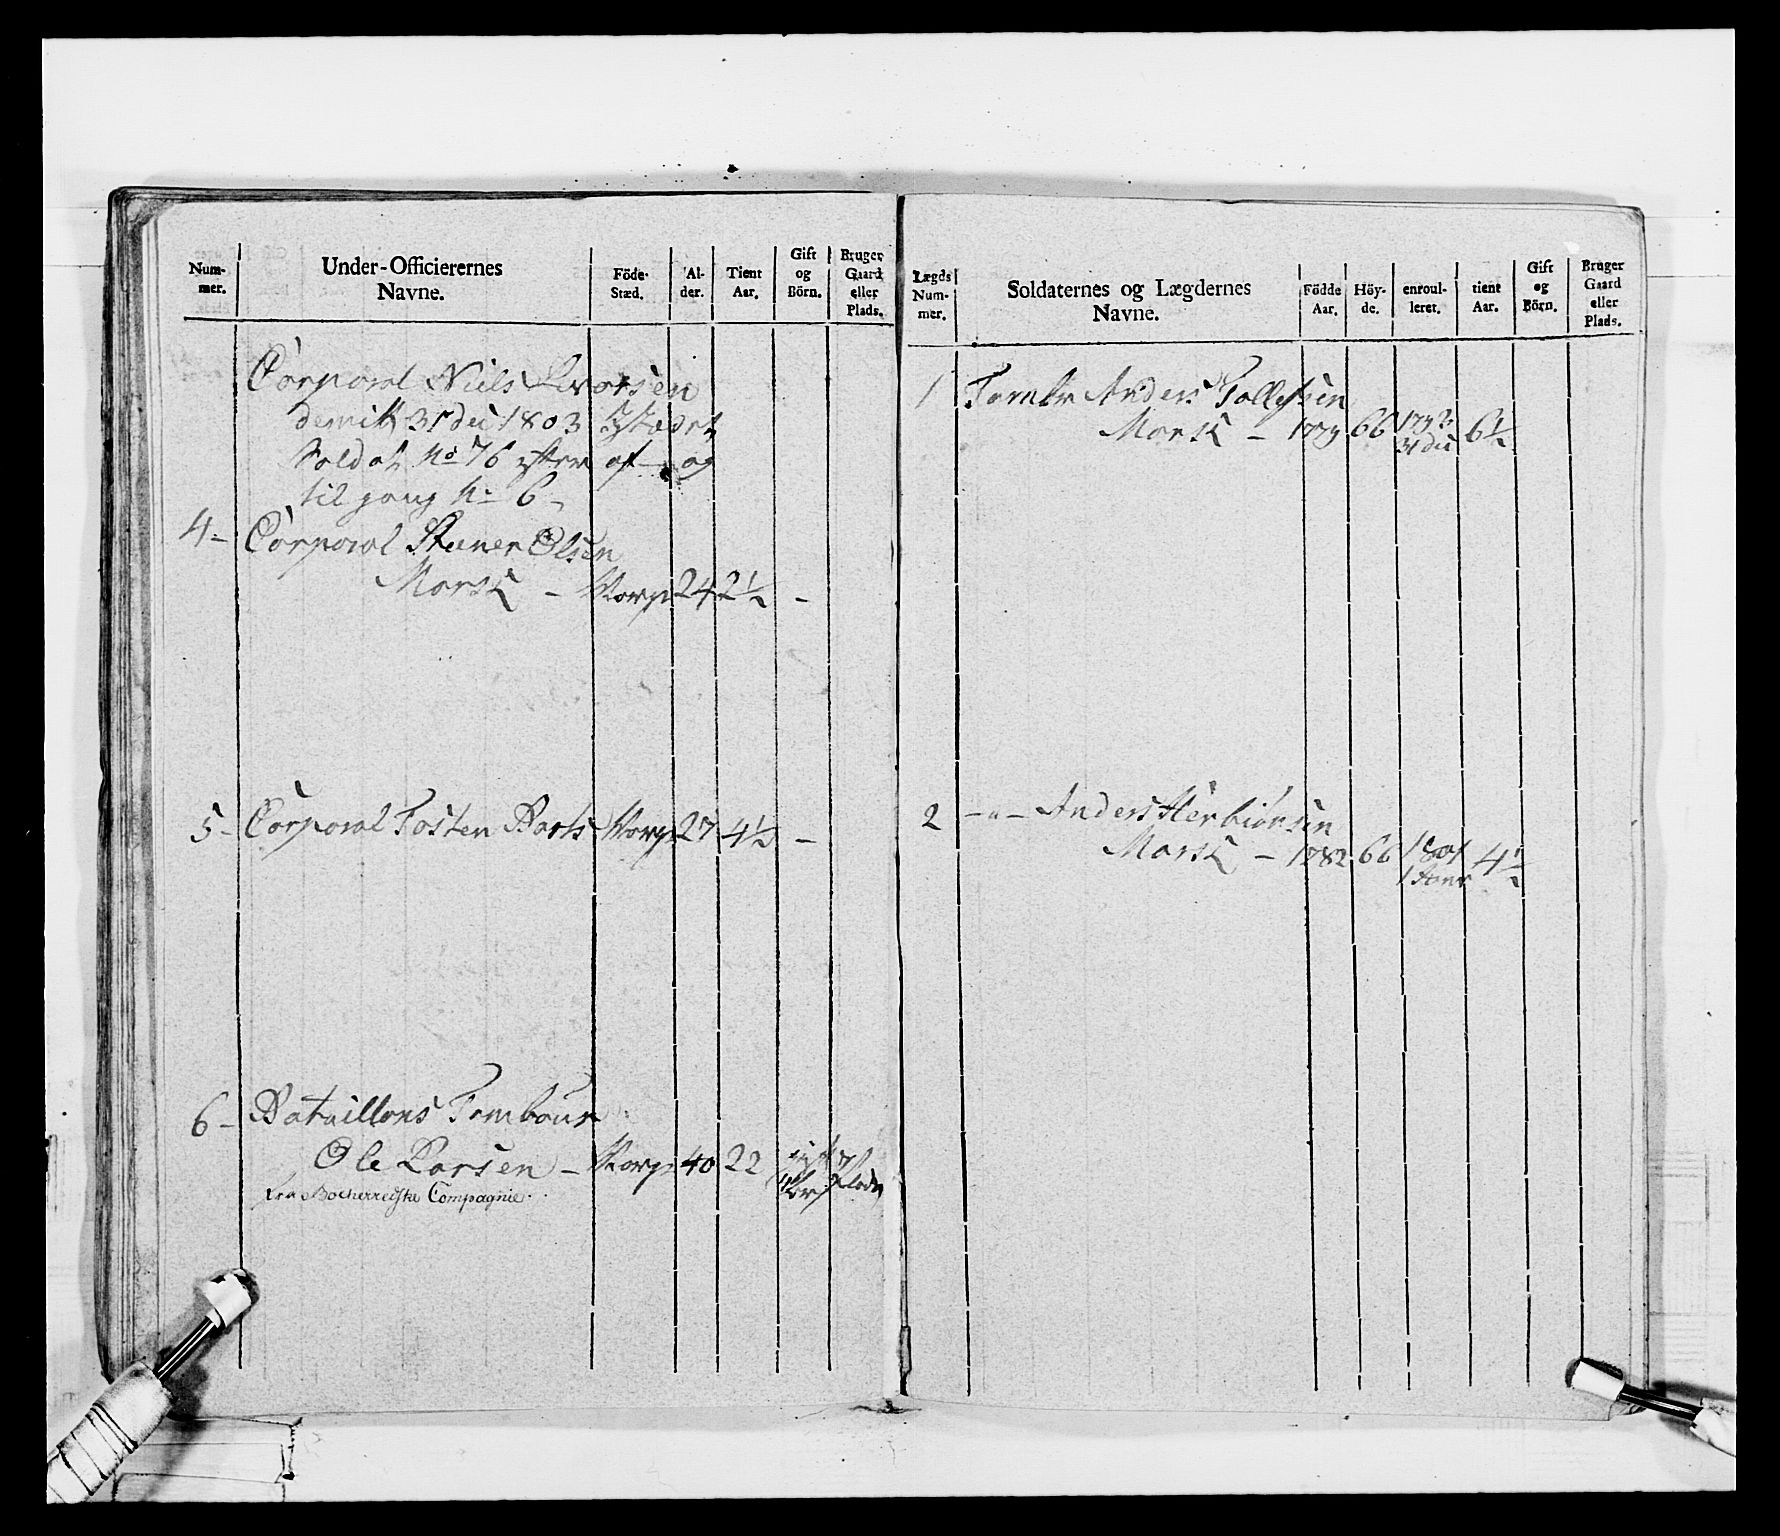 Num-
mer.
Under-Officierernes
Navne.
Föde-
Stæd.
Al-
der.
Tient
Aar.
Gift
og
Börn.
Bruger
Gaard
eller
Plads.
Corporal Niels Ivarsen
31 dec 1803
Soldat No 76 og
til gang No 6 -
4 - Corporal Steener Olsen
Norsk - Norge 24 2½ -
5 - Corporal Tosten Norge 27 4½ -
6 - Bataillons Tambour
Ole Larsen - Norge 40 22
fra Compagnie.
Lægds
Num-
mer.
Soldaternes og Lægdernes
Navne.
Födde
Aar.
Höy-
de.
enroul-
leret.
tient
Aar.
Gift
og
Börn.
Bruger
Gaard
eller
Plads.
1 Anders Tollefsen
Norsk - 1779 66 6½
31 dec
2 - " - Anders Herbiönsen
Norsk - 1782 66 1801 4½